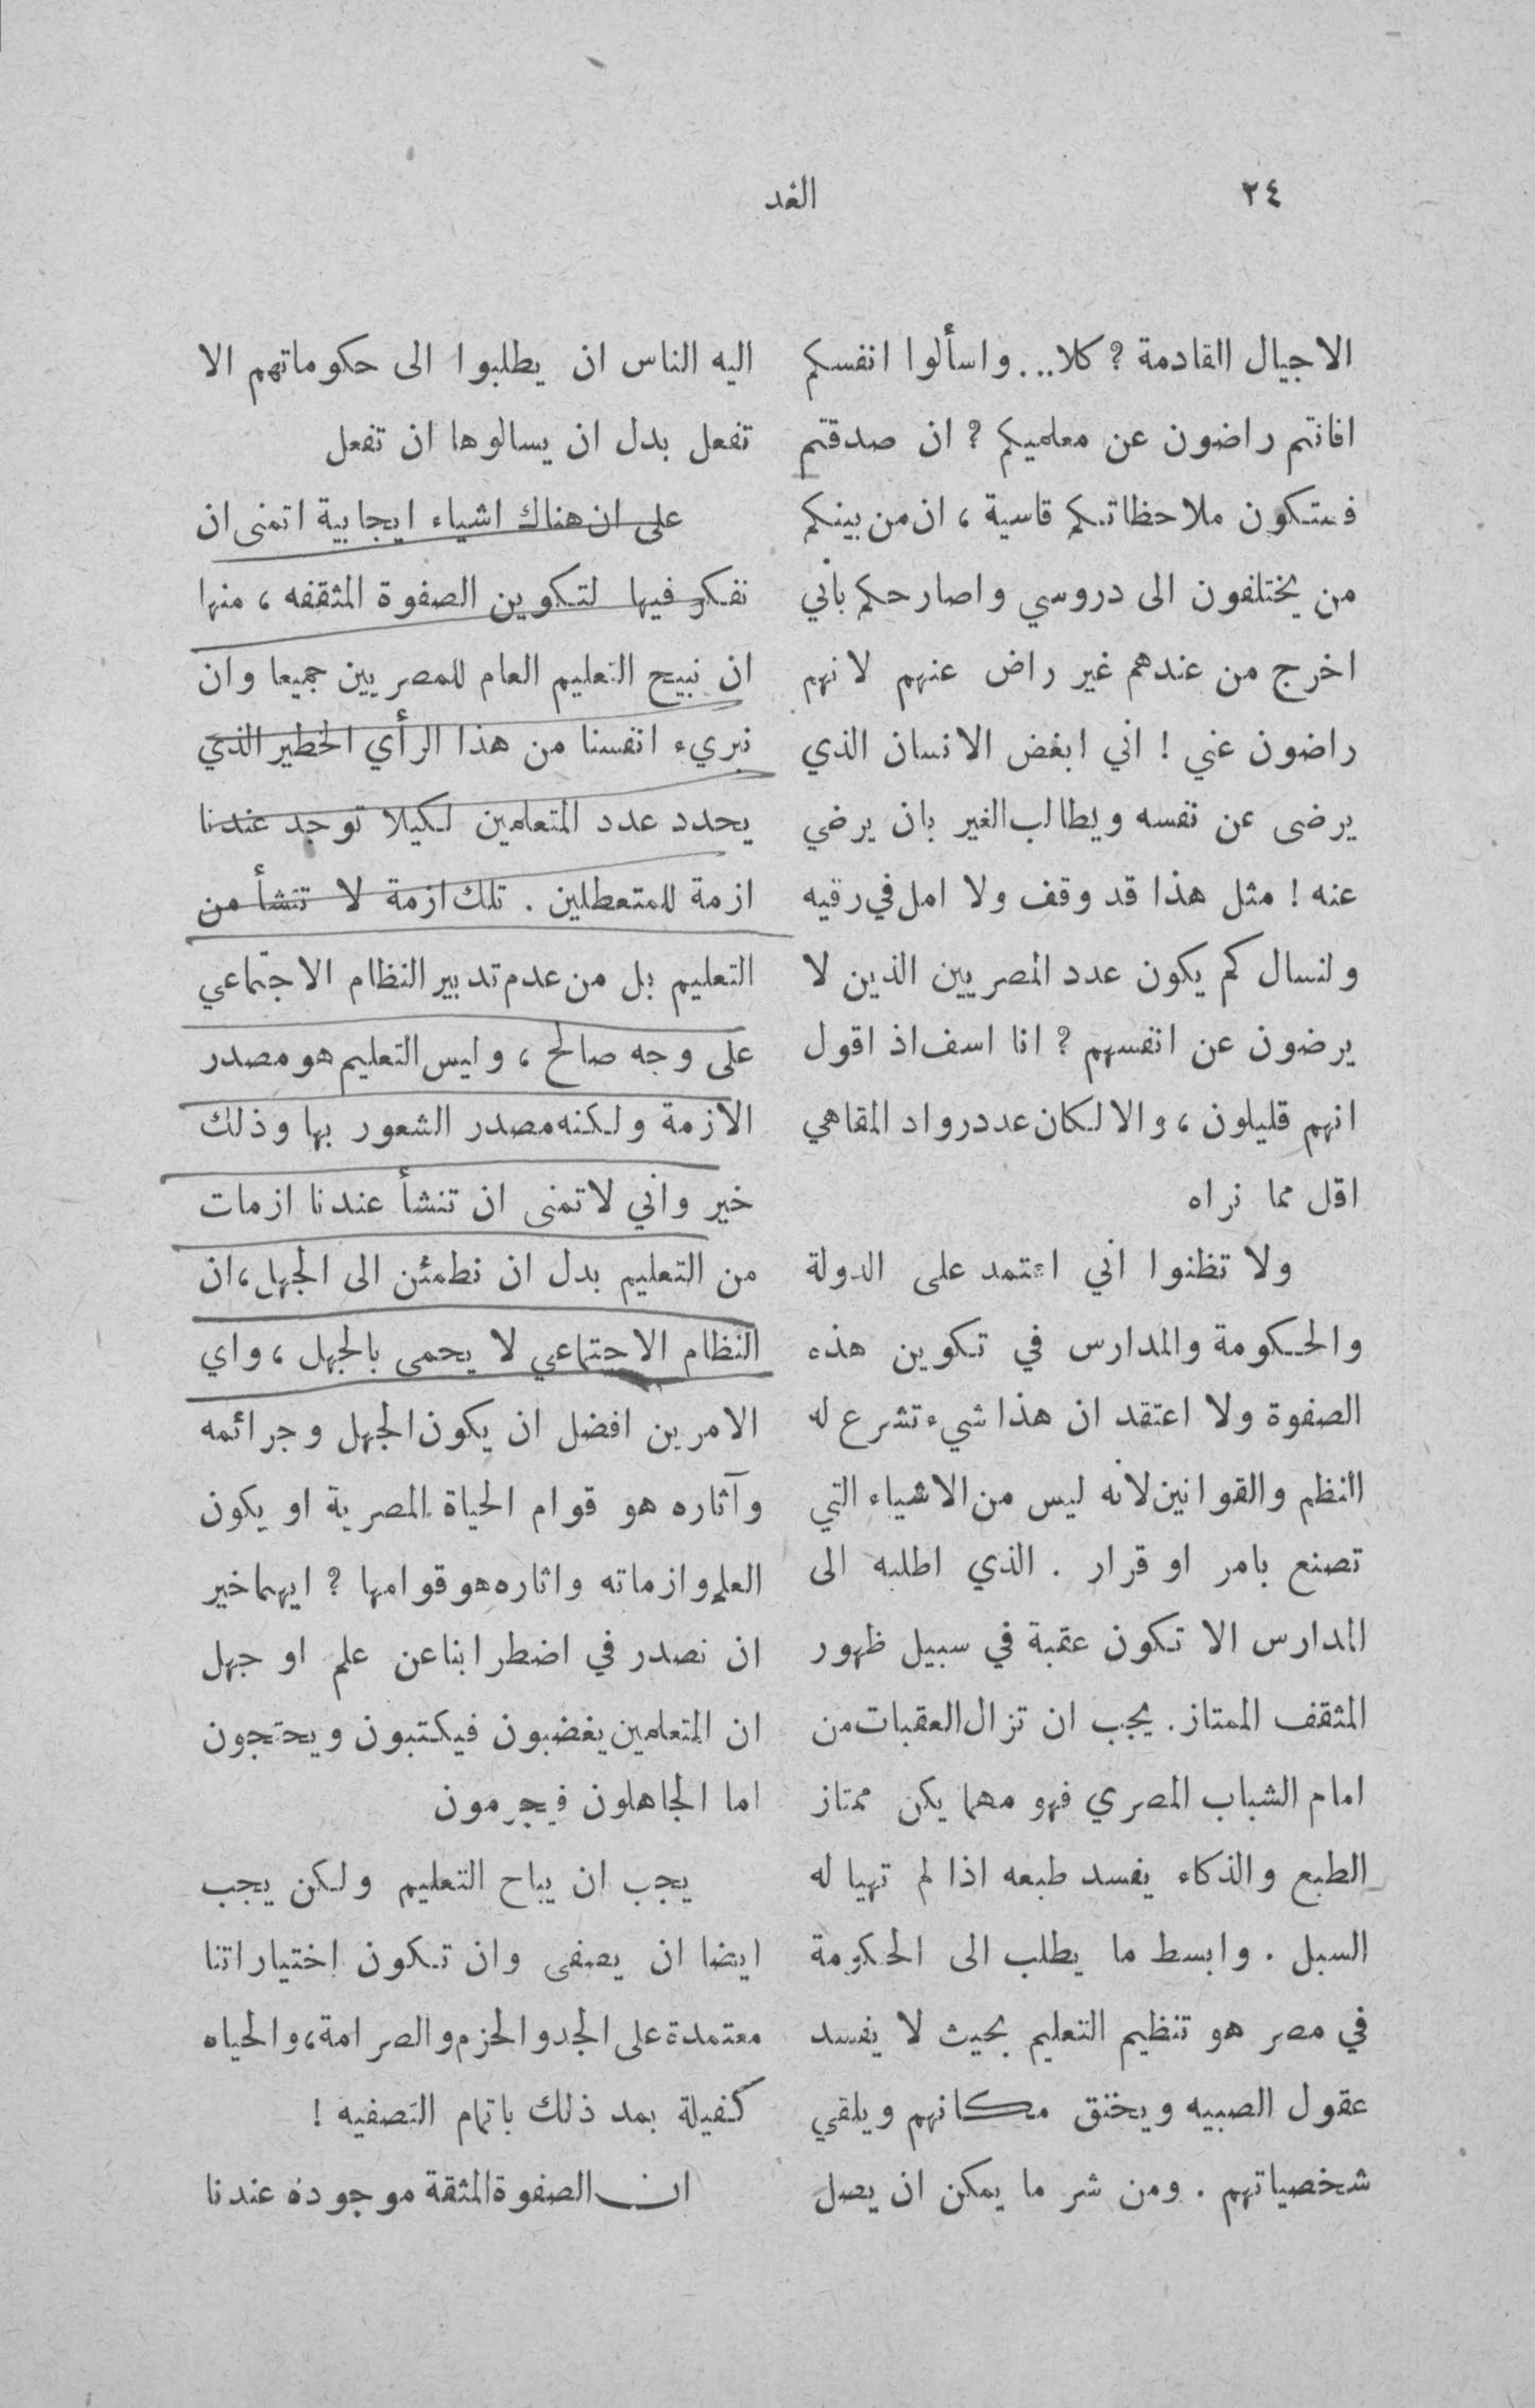 ٢٤
الغد
الاجيال القادمة ? كلا... واسألوا انفسكم
افانتم راضون عن معلميكم ? ان صدقتم
فستكون ملاحظاتكم قاسية ، ان من بينكم
من يختلفون الى دروسي واصارحكم بأني
اخرج من عندهم غير راض عنهم لانهم
راضون عني ! اني ابغض الانسان الذي
يرضى عن نفسه ويطالب الغير بان يرضي
عنه ! مثل هذا قد وقف ولا امل في رقيه
ولنسال كم يكون عدد المصريين الذين لا
يرضون عن انفسهم ? انا اسف اذ اقول
انهم قليلون ، والا لكان عدد رواد المقاهي
اقل مما نراه
ولا تظنوا اني اعتمد على الدولة
والحكومة والمدارس في تكوين هذه
الصفوة ولا اعتقد ان هذا شيء تشرع له
النظم والقوانين لأنه ليس من الاشياء التي
تصنع بامر او قرار . الذي اطلبه الى
المدارس الا تكون عقبة في سبيل ظهور
المثقف الممتاز . يجب ان تزال العقبات من
امام الشباب المصري فهو مهما يكن ممتاز
الطبع والذكاء يفسد طبعه اذا لم تهيا له
السبل . وابسط ما يطلب الى الحكومة
في مصر هو تنظيم التعليم بحيث لا يفسد
عقول الصبيه ويخنق مكانهم ويلقي
شخصياتهم . ومن شر ما يمكن ان يصل
اليه الناس ان يطلبوا الى حكوماتهم الا
تفعل بدل ان يسالوها ان تفعل
على ان هناك اشياء ايجابية اتمنى ان
نفكر فيها لتكوين الصفوة المثقفه ، منها
ان نبيح التعليم العام للمصريين جميعا وان
نبريء انفسنا من هذا الرأي الخطير الذي
يحدد عدد المتعلمين لكيلا توجد عندنا
ازمة للمتعطلين . تلك ازمة لا تنشأ من
التعليم بل من عدم تدبير النظام الاجتماعي
على وجه صالح ، وليس التعليم هو مصدر
الازمة ولكنه مصدر الشعور بها وذلك
خير واني لاتمنى ان تنشأ عندنا ازمات
من التعليم بدل ان نطمئن الى الجهل ، ان
النظام الاجتماعي لا يحمى بالجهل ، واي
الامرين افضل ان يكون الجهل وجرائمه
وآثاره هو قوام الحياة المصرية او يكون
العلم وازماته واثاره هو قوامها ? ايهما خير
ان نصدر في اضطرابنا عن علم او جهل
ان المتعلمين يغضبون فيكتبون ويحتجون
اما الجاهلون فيجرمون
يجب ان يباح التعليم ولكن يجب
ايضا ان يصفى وان تكون إختياراتنا
معتمدة على الجد والحزم والصرامة ، والحياه
كفيلة بعد ذلك باتمام التصفيه !
ان الصفوة المثقة موجودة عندنا